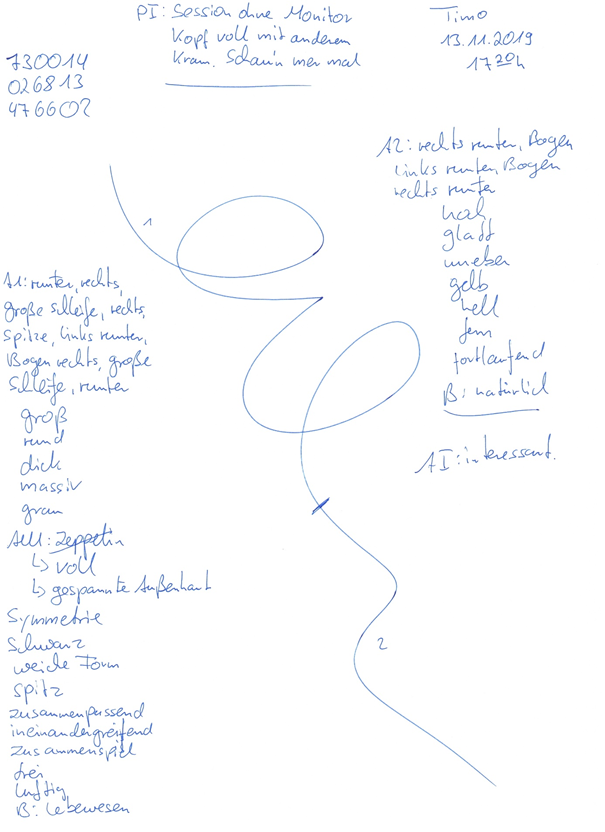 PI: Session ohne Monitor
Kopf voll mit anderem
Kram. Schau'n mer mal
Timo
13.11.2019
17 20h
730014
026813
476602
1
A1: runter, rechts,
große Schleife, rechts,
Spitze, links runter,
Bogen rechts, große
Schleife, runter
groß
rund
dick
massiv
grau
AUL: Zeppelin
↳ voll
↳ gespannte Außenhaut
Symmetrie
Schwarz
weiche Form
spitz
zusammenpassend
ineinandergreifend
zusammenspiel
frei
luftig
B: Lebewesen
A2: rechts runter, Bogen
links runter, Bogen
rechts runter
hoch
glatt
uneben
gelb
hell
fern
fortlaufend
B: natürlich
AI: interessant.
2